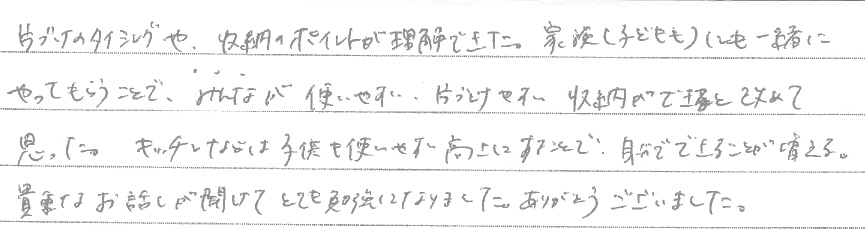 片づけのタイミングや、収納のポイントが理解できた。家族(子どもも)にも一緒に
やってもらうことで、みんなが使いやすい、片づけやすい収納ができると改めて
思った。キッチンならば子供も使いやすい高さにすることで、自分でできることが増える。
貴重なお話しが聞けてとても勉強になりました。ありがとうございました。